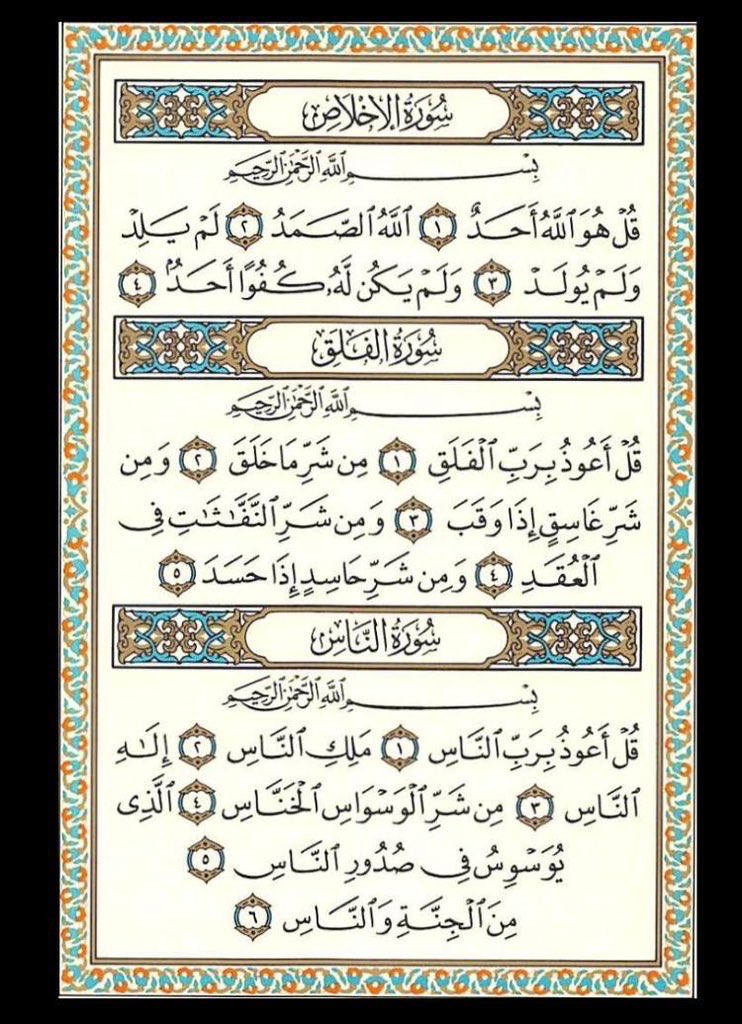 سُورَةُ الإِخْلَاصِ
بِسْمِ اللَّهِ الرَّحْمَٰنِ الرَّحِيمِ
قُلْ هُوَ اللَّهُ أَحَدٌ ١ اللَّهُ الصَّمَدُ ٢ لَمْ يَلِدْ
وَلَمْ يُولَدْ ٣ وَلَمْ يَكُن لَّهُۥ كُفُوًا أَحَدٌۢ ٤
سُورَةُ الفَلَقِ
بِسْمِ اللَّهِ الرَّحْمَٰنِ الرَّحِيمِ
قُلْ أَعُوذُ بِرَبِّ الْفَلَقِ ١ مِن شَرِّ مَا خَلَقَ ٢ وَمِن
شَرِّ غَاسِقٍ إِذَا وَقَبَ ٣ وَمِن شَرِّ النَّفَّٰثَٰتِ فِى
الْعُقَدِ ٤ وَمِن شَرِّ حَاسِدٍ إِذَا حَسَدَ ٥
سُورَةُ النَّاسِ
بِسْمِ اللَّهِ الرَّحْمَٰنِ الرَّحِيمِ
قُلْ أَعُوذُ بِرَبِّ النَّاسِ ١ مَلِكِ النَّاسِ ٢ إِلَٰهِ
النَّاسِ ٣ مِن شَرِّ الْوَسْوَاسِ الْخَنَّاسِ ٤ الَّذِى
يُوَسْوِسُ فِى صُدُورِ النَّاسِ ٥
مِنَ الْجِنَّةِ وَالنَّاسِ ٦